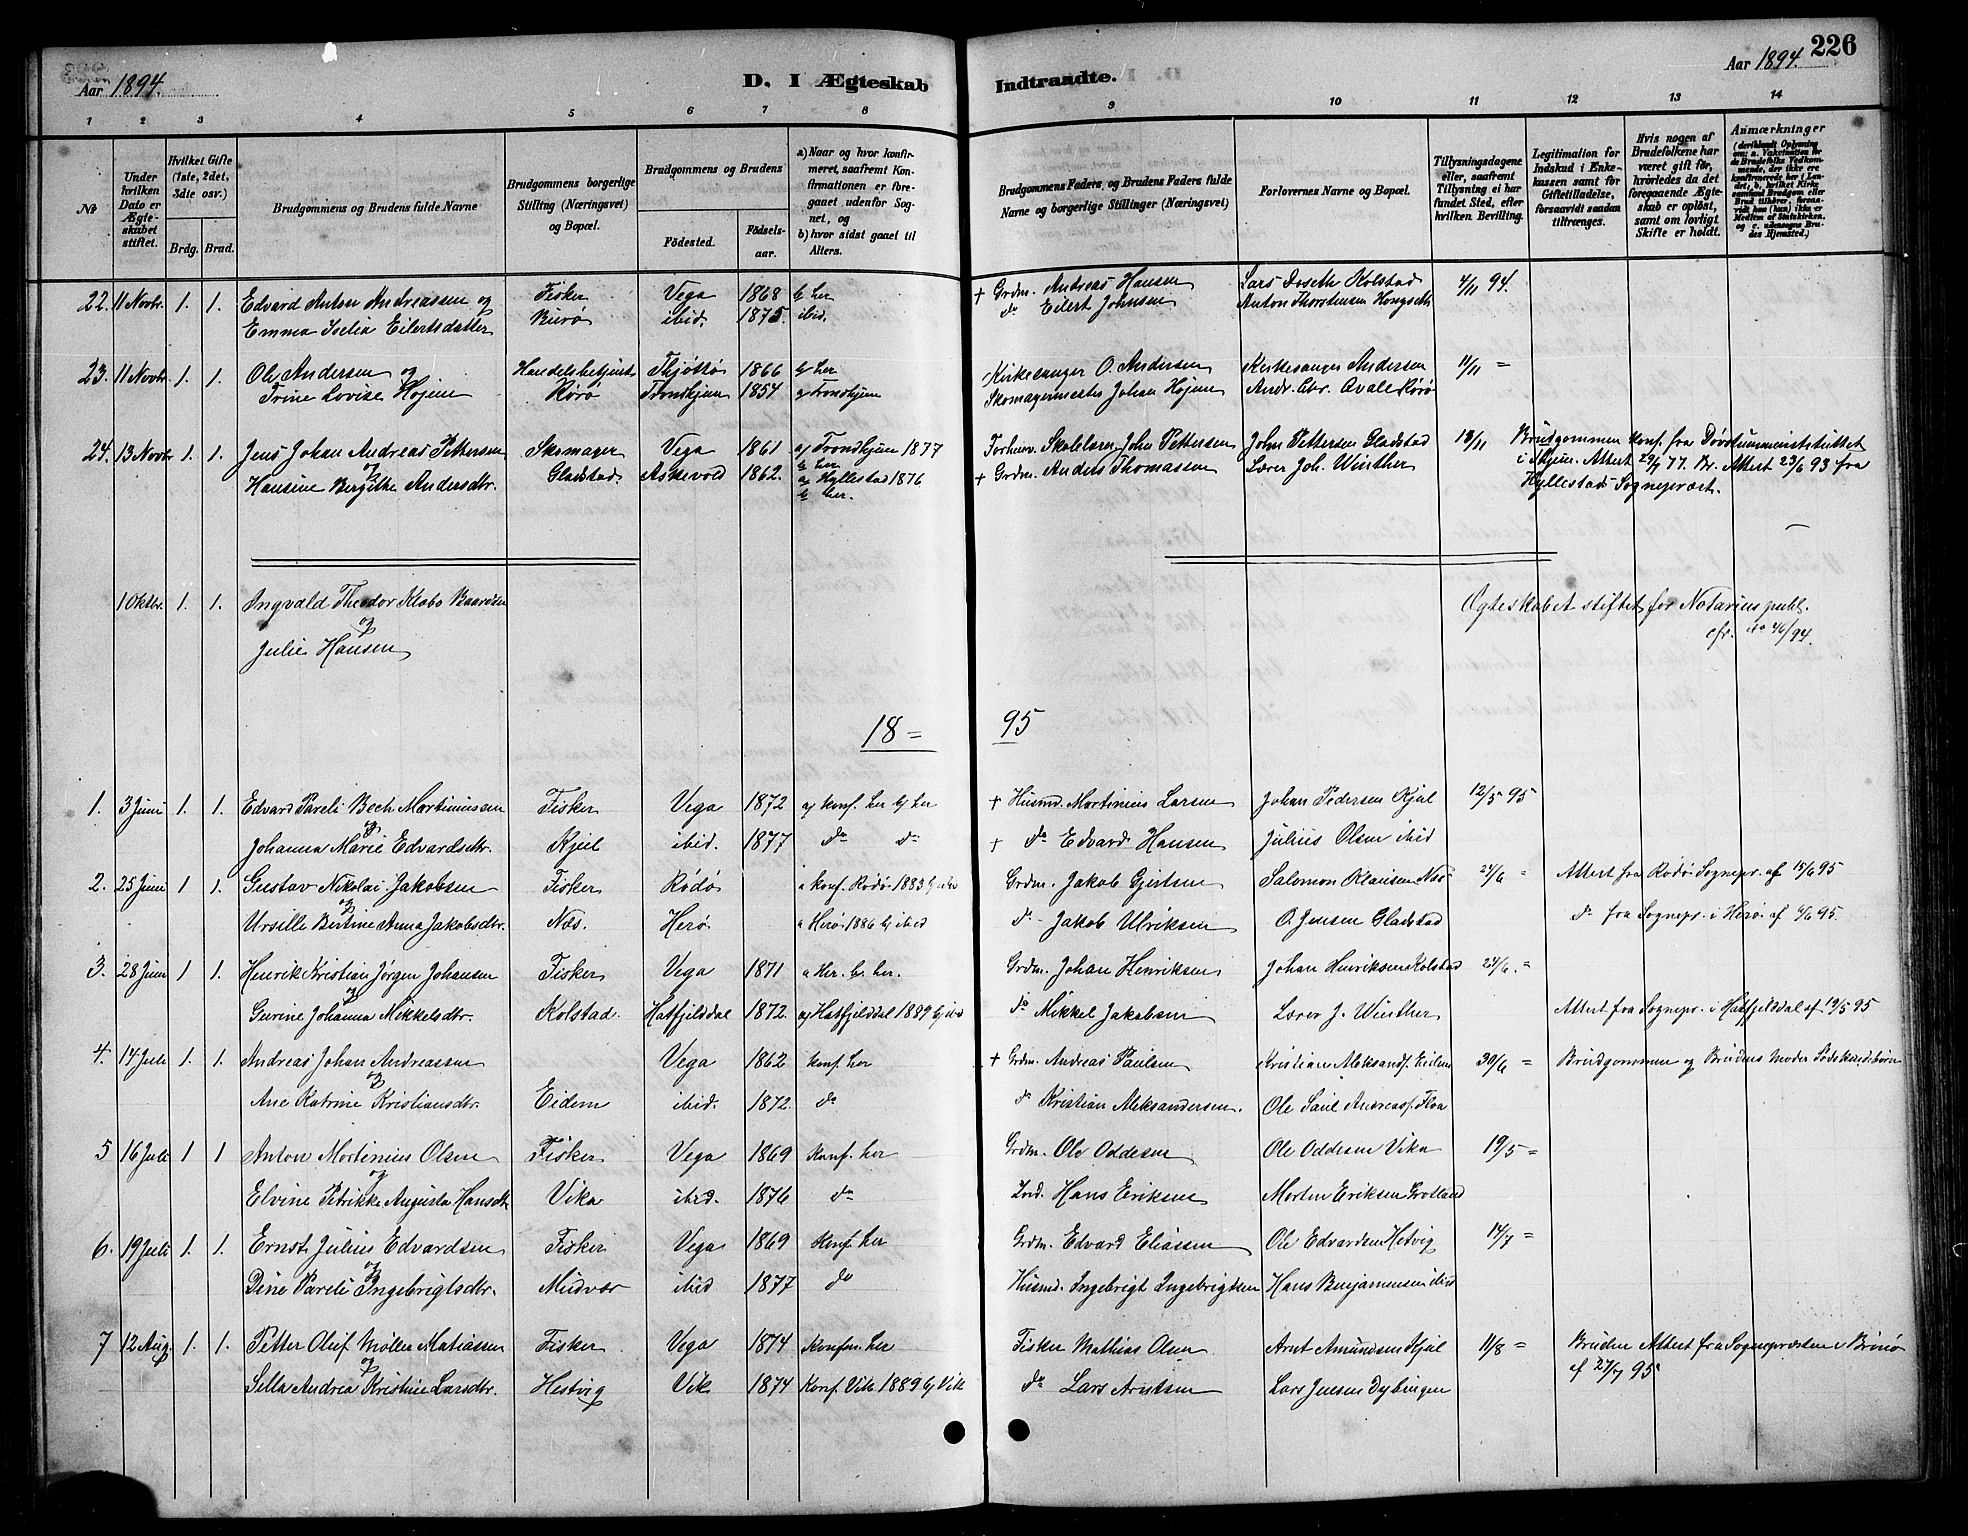 Aar 1894. D. I Ægteskab Indtraadte. Aar 1894. 226
1 2 3 4 5 6 7 8 9 10 11 12 13 14
№
Under hvilken Dato er Ægteskabet stiftet.
Hvilket Gifte (1ste, 2det, 3die osv.)
Brdg. Brud.
Brudgommens og Brudens fulde Navne
Brudgommens borgerlige Stilling (Næringsvei) og Bopæl.
Brudgommens og Brudens
Fødested.
Fødselsaar.
a) Naar og hvor konfirmeret, saafremt Konfirmationen er foregaaet udenfor Sognet, og
b) hvor sidst gaaet til Alters.
Brudgommens Faders, og Brudens Faders fulde Navne og borgerlige Stillinger (Næringsvei)
Forlovernes Navne og Bopæl.
Tillysningsdagene eller, saafremt Tillysning ei har fundet Sted, efter hvilken Bevilling.
Legitimation for Indskud i Enkekassen samt for Giftetilladelse, forsaavidt saadan tiltrænges.
Hvis nogen af Brudefolkene har været gift før, hvorledes da det foregaaende Ægteskab er opløst, samt om lovligt Skifte er holdt.
Anmærkninger (deriblandt Oplysning om: a. Vakcination for de Brudefolks Vedkommende, der ikke ere konfirmerede her i Landet; b. hvilket Kirkesamfund Brudgom eller Brud tilhører, forsaavidt han (hun) ikke er Medlem af Statskirken, og c. udensogns Brudes Hjemsted.)
22. 11 Novbr. 1. 1. Edvard Anton Andreassen og Fisker Vega 1868 b her + Grdm. Andreas Hansen Lars Doseth Kolstad 4/11 94.
Emma Iselia Eilertsdatter Burø ibid. 1875. ibid. do Eilert Johnsen Anton Thorstensen Hongseth
23. 11 Novbr. 1. 1. Ole Andersen og Handelsbetjent Thjøttø 1866 b her Kirkesanger O. Andersen Kirkesanger Andersen 11/11 =
Trine Lovise Højem Rørø Trondhjem 1854 a Trondhjem Skomagermester Johan Højem Andr. Chr. Avale Rørø
24. 13 Novbr 1. 1. Jens Johan Andreas Pettersen Skomager Vega 1861 a Trondhjem 1877 Forhenv. Skolelærer John Pettersen John Pettersen Gladstad 18/11 Brudgommen konf. fra Døvstummeinstituttet
og b her i Thjem. Attest 29/7 77. Br. Attest 23/6 93 fra
Hansine Bergithe Andersdtr. Gladstad Askevold 1862. a Hyllestad 1876 + Grdm. Anders Thomassen Lærer Joh. Winther Hyllestads Sogneprest.
b her.
1 Oktbr. 1. 1. Ingvald Theodor Klæbo Baardsen Ægteskabet stiftet for Notarius publ.
og cfr. No 46/94.
Julie Hansen
18= 95
1. 3 Juni 1. 1. Edvard Pareli Bech Martinussen Fisker Vega 1872 a konf. her b her + Husmd. Martinius Larsen Johan Pedersen Kjul 12/5 95
og
Johanna Marie Edvardsdtr. Kjeil ibid. 1877 do do + do Edvard Hansen Julius Olsen ibid
2. 25 Juni 1 1. Gustav Nikolai Jakobsen Fisker Rødø a konf. Rødø 1883 b ibid Grdm. Jakob Gjertsen Salomon Klausen Næs 24/6 = Attest fra Rødø Sognepr. af 15/6 95
og
Ursille Bertine Anna Jakobsdtr. Næs. Herø a Herø 1886 b ibid do Jakob Ulriksen O. Jensen Gladstad do fra Sognepr. i Herø af 6/6 95.
3. 28 Juni 1 1. Henrik Kristian Jørgen Johansen Fisker Vega 1871 a Her. b. her. Grdm. Johan Henriksen Johan Henriksen Kolstad 24/6. =
og
Gurine Johanna Mikkelsdtr. Kolstad. Hatfjelddal 1872. a Hatfjelddal 1889 b ibid do Mikkel Jakobsen Lærer J. Winther Attest fra Sognepr. i Hatfjelddal af 19/5 95
4. 14 Juli 1. 1. Andreas Johan Andreassen Vega 1862 konf. her + Grdm. Andreas Paulsen Kristian Aleksands. Eidem 30/6 = Brudgommen og Brudens Moder Sødskendebørn
og
Ane Katrine Kristiansdtr. Eidem ibid. 1872. do do Kristian Aleksandersen. Ole Saul Andreass. Floa
5 16 Juli 1 1 Anton Martinius Olsen Fisker Vega 1869 Konf. her Grdm. Ole Oddesen Ole Oddesen Vika 19/5 =
og
Elvine Petrikke Augusta Hansdtr Vika ibid. 1876 do Ind. Hans Eriksen Morten Eriksen Grotland
6. 19 Juli 1. 1. Ernst Julius Edvardsen Fisker Vega 1869 Konf. her Grdm. Edvard Eliassen Ole Edvardsen Hetvig 14/7 =
og
Dine Pareli Ingebrigtsdtr. Mudvær ibid 1877 do Husmd. Ingebrigt Ingebrigtsen Hans Benjaminsen ibid
7 12 Aug. 1. 1. Petter Oluf Møller Matiassen Fisker Vega 1874 Konfm. her Fisker Mathias Olsen Arnt Amundsen Kjul 11/8 = Bruden Attest fra Sognepræsten i Brønø
og af 27/7 95
Sella Andrea Kristine Larsdtr. Hestvig Vik 1874 Konf. Vik 1889 b Vik do Lars Arntsen Lars Jensen Dybingen